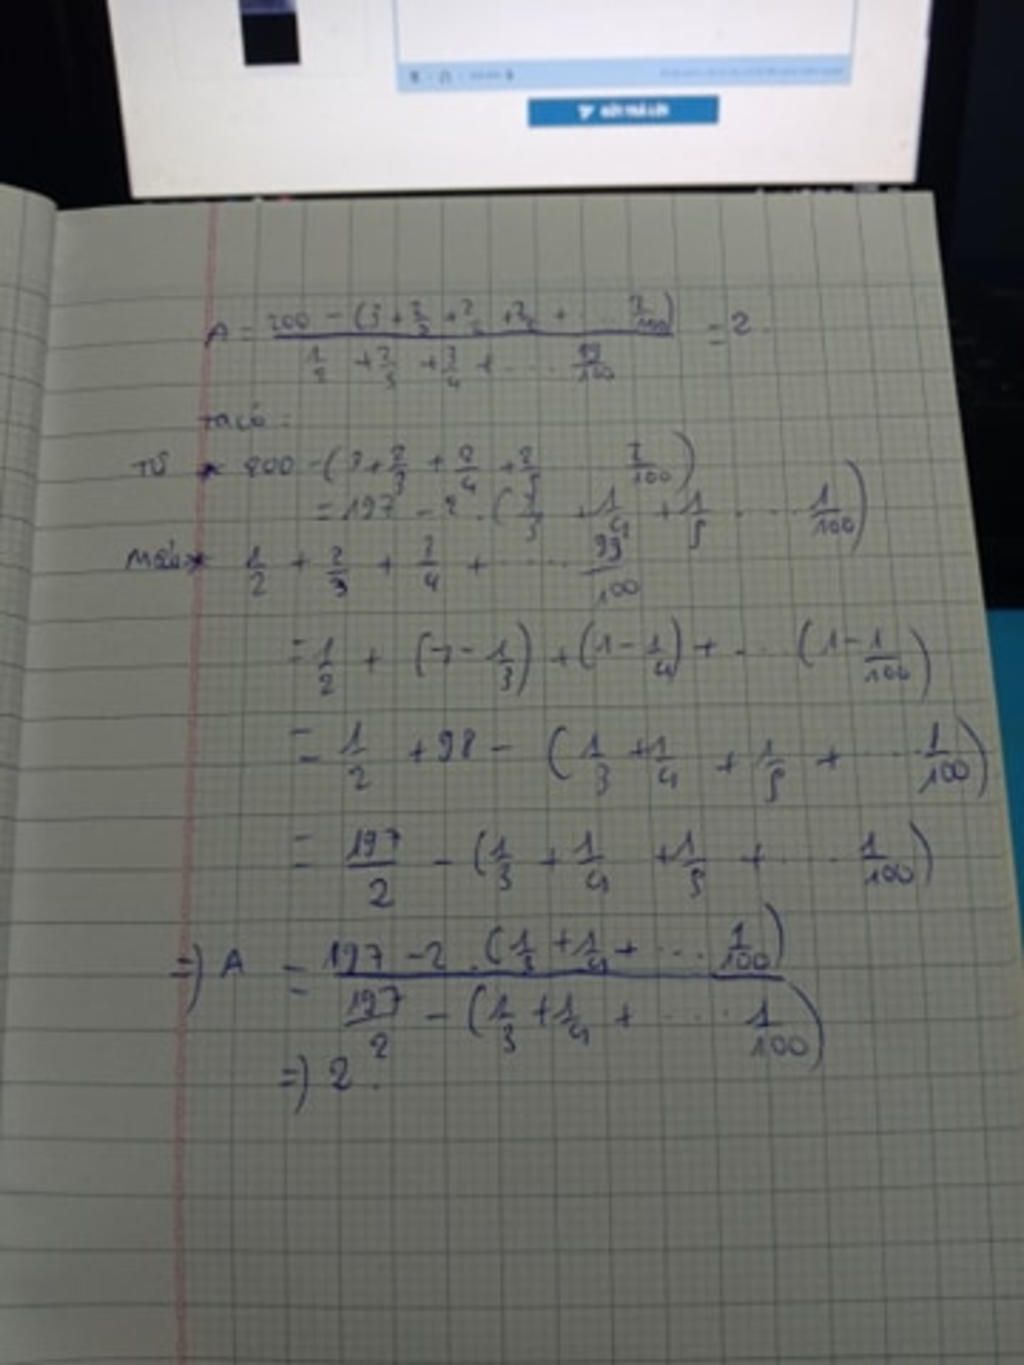 A = 200 - (3 + 2/3 + 2/4 + 2/5 + ... 2/100) / 1/2 + 2/3 + 3/4 + ... 99/100 = 2
Ta có:
TỬ * 200 - (3 + 2/3 + 2/4 + 2/5 ... 2/100)
= 197 - 2 . (1/3 + 1/4 + 1/5 ... 1/100)
MẪU * 1/2 + 2/3 + 3/4 + ... 99/100
= 1/2 + (1 - 1/3) + (1 - 1/4) + ... (1 - 1/100)
= 1/2 + 98 - (1/3 + 1/4 + 1/5 + ... 1/100)
= 197/2 - (1/3 + 1/4 + 1/5 + ... 1/100)
=) A = 197 - 2 . (1/3 + 1/4 + ... 1/100) / 197/2 - (1/3 + 1/4 + ... 1/100)
=) 2.